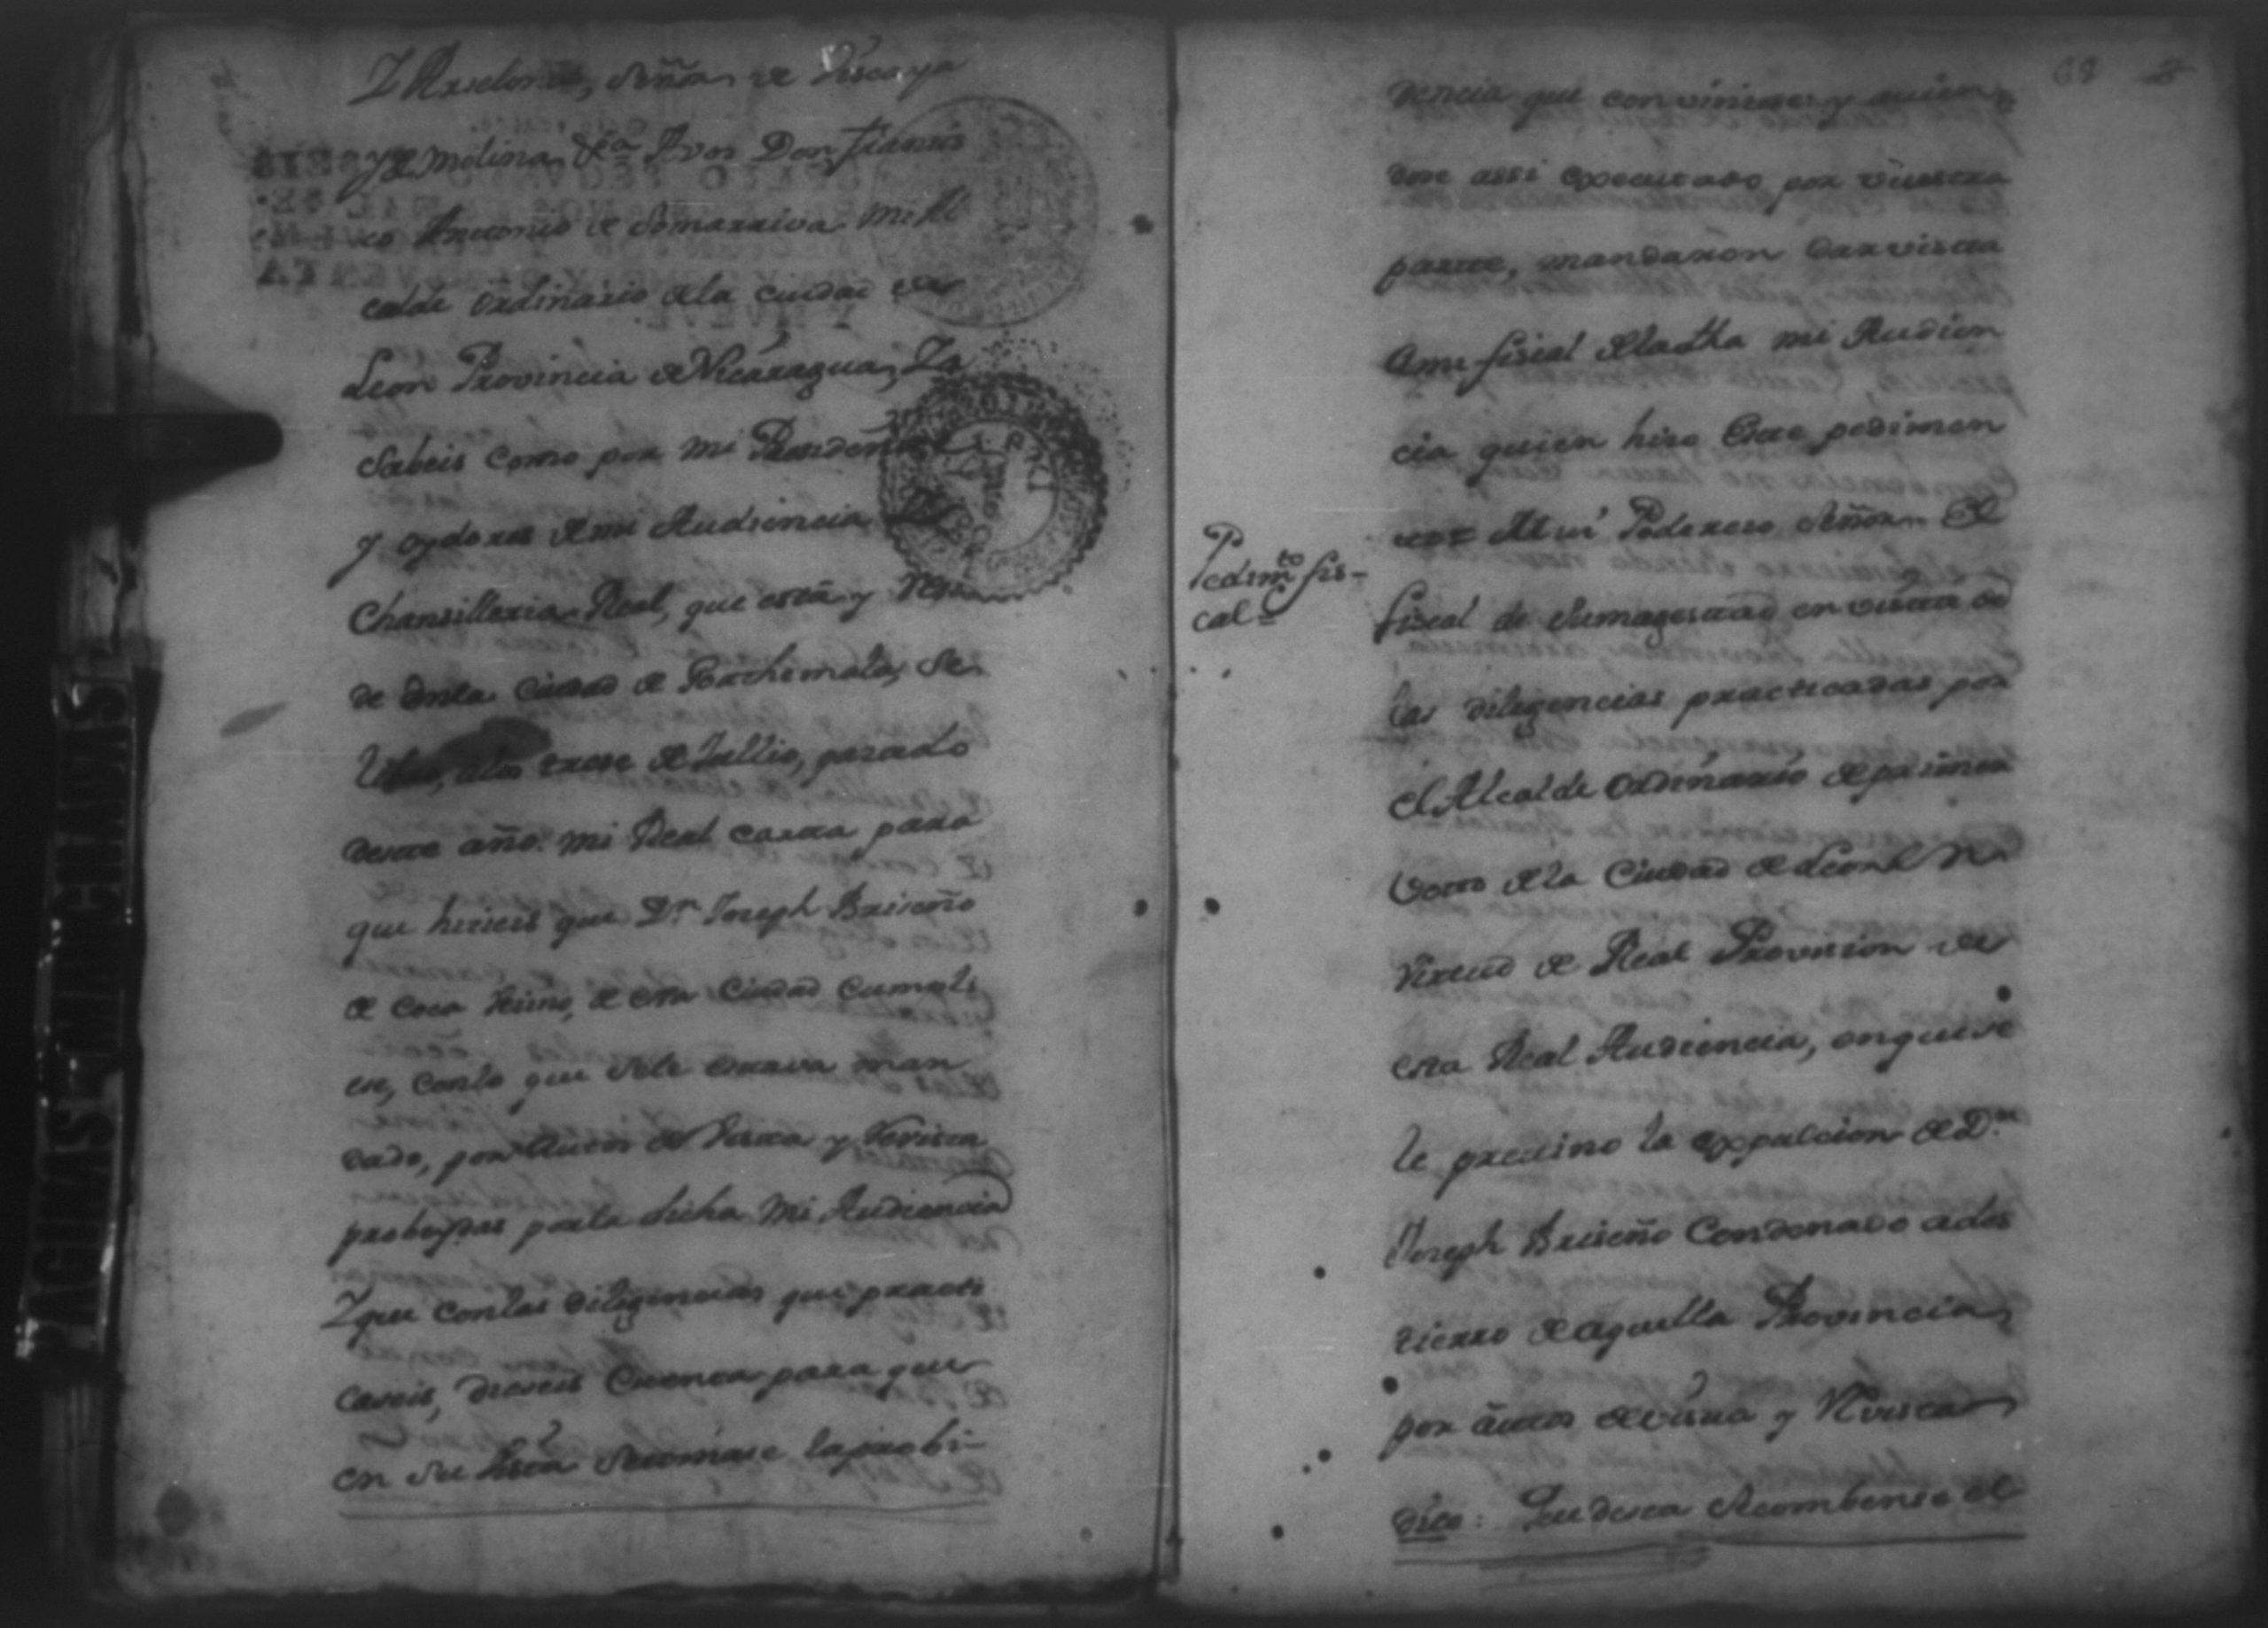 y Barselona, Señor de Viscaya
y de Molina &a A vos Don Fransis
co Antonio de Somarriva mi Al
calde ordinario de la ciudad de
Leon Provincia de Nicaragua, Ya
Sabeis como por mi Presidente
y oydores de mi Audiencia
Chansilleria Real, que está y resi
de en la Ciudad de Goathemala, se
libró, a los trese de Jullio, pasado
deste año. mi Real carta para
que hicieis que Dn Joseph Briseño
de Coca Vezino, de esa Ciudad Cumpli
ese, con lo que se le estava man
dado, por Autos de Vista y Revista
probeydos por la dicha mi Audiencia
Y que con las diligencias que practi
caseis, dieseis Cuenta para que
en su Vista se tomase la probi-
68
dencia que conviniese; y havien
dose assi executado por vuestra
parte, mandaron dar vista
a mi fiscal de la dha mi Audien
cia quien hizo Este pedimen
Pedimto fis-
cal
to = Mui Poderoso Señor = El
fiscal de Su magestad en vista de
las diligencias practicadas por
el Alcalde ordinario de primer
Voto de la Ciudad de Leon en
Virtud de Real Provision de
esta Real Audiencia, en que se
le previno la expulcion de Dn
Joseph Briseño Condenado a des
tierro de aquella Provincia,
por autos de vista y Revista
dice: Que desea se combense el